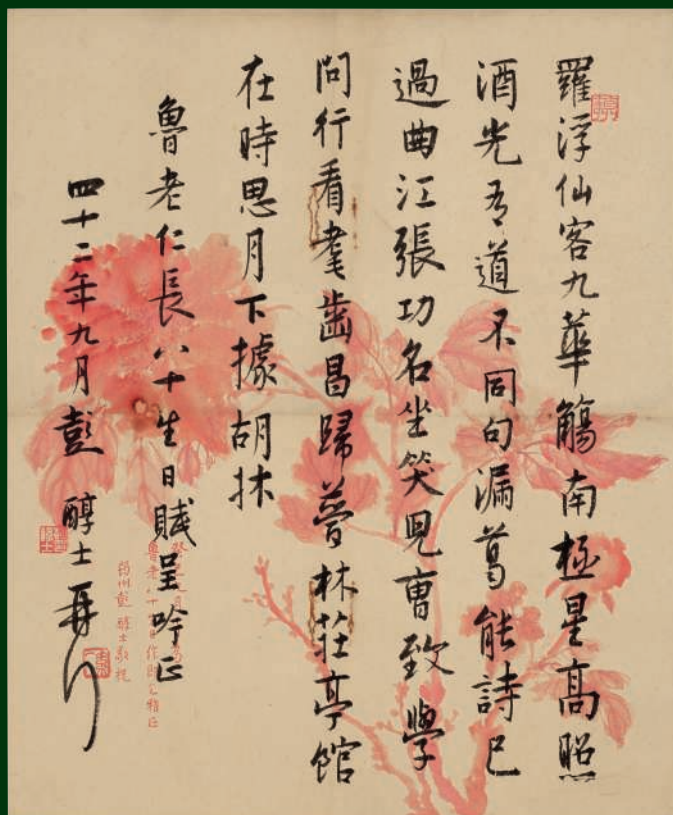 羅浮仙客九華觴南極星高照
酒光吾道不同句漏葛能詩已
過曲江張功名坐笑兒曹致學
問行看耄齒昌歸夢林莊亭館
在時思月下據胡牀
魯老仁長八十生日賦呈吟正
四十二年九月彭醇士再拜
魯老八十
筠州彭醇士敬祝